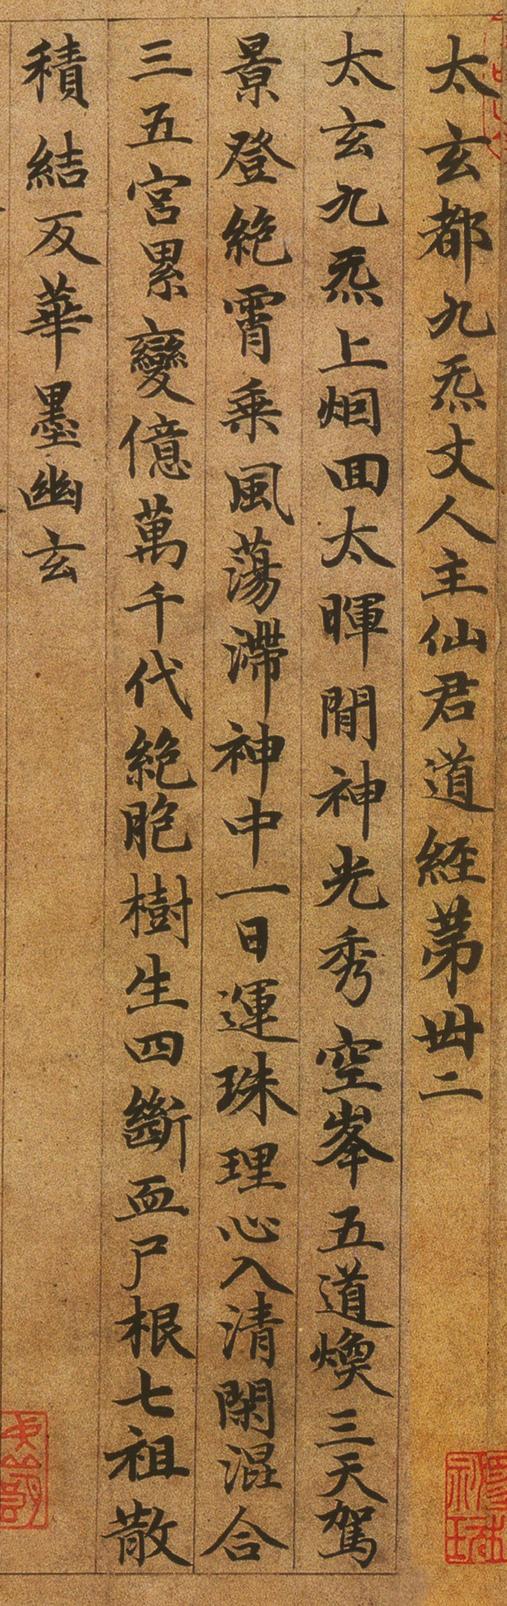 太玄都九炁丈人主仙君道經苐卌二
太玄九炁上烟囬太暉閒神光秀空峯五道煥三天駕
景登絶霄乘風蕩滯神中一日運珠理心入清閑混合
三五宮累變億萬千代絶胞樹生四斷血尸根七祖散
積結反華墨幽玄